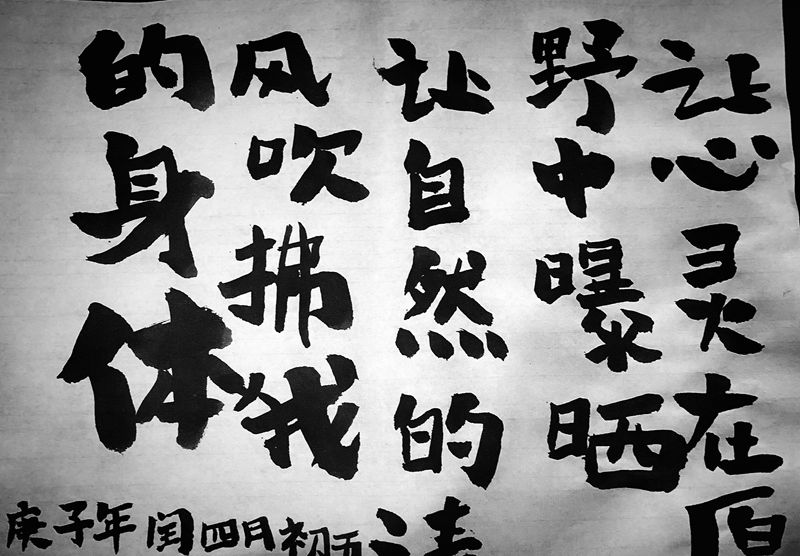 让心灵在原
野中曝晒
让自然的清
风吹拂我
的身体
庚子年闰四月初五